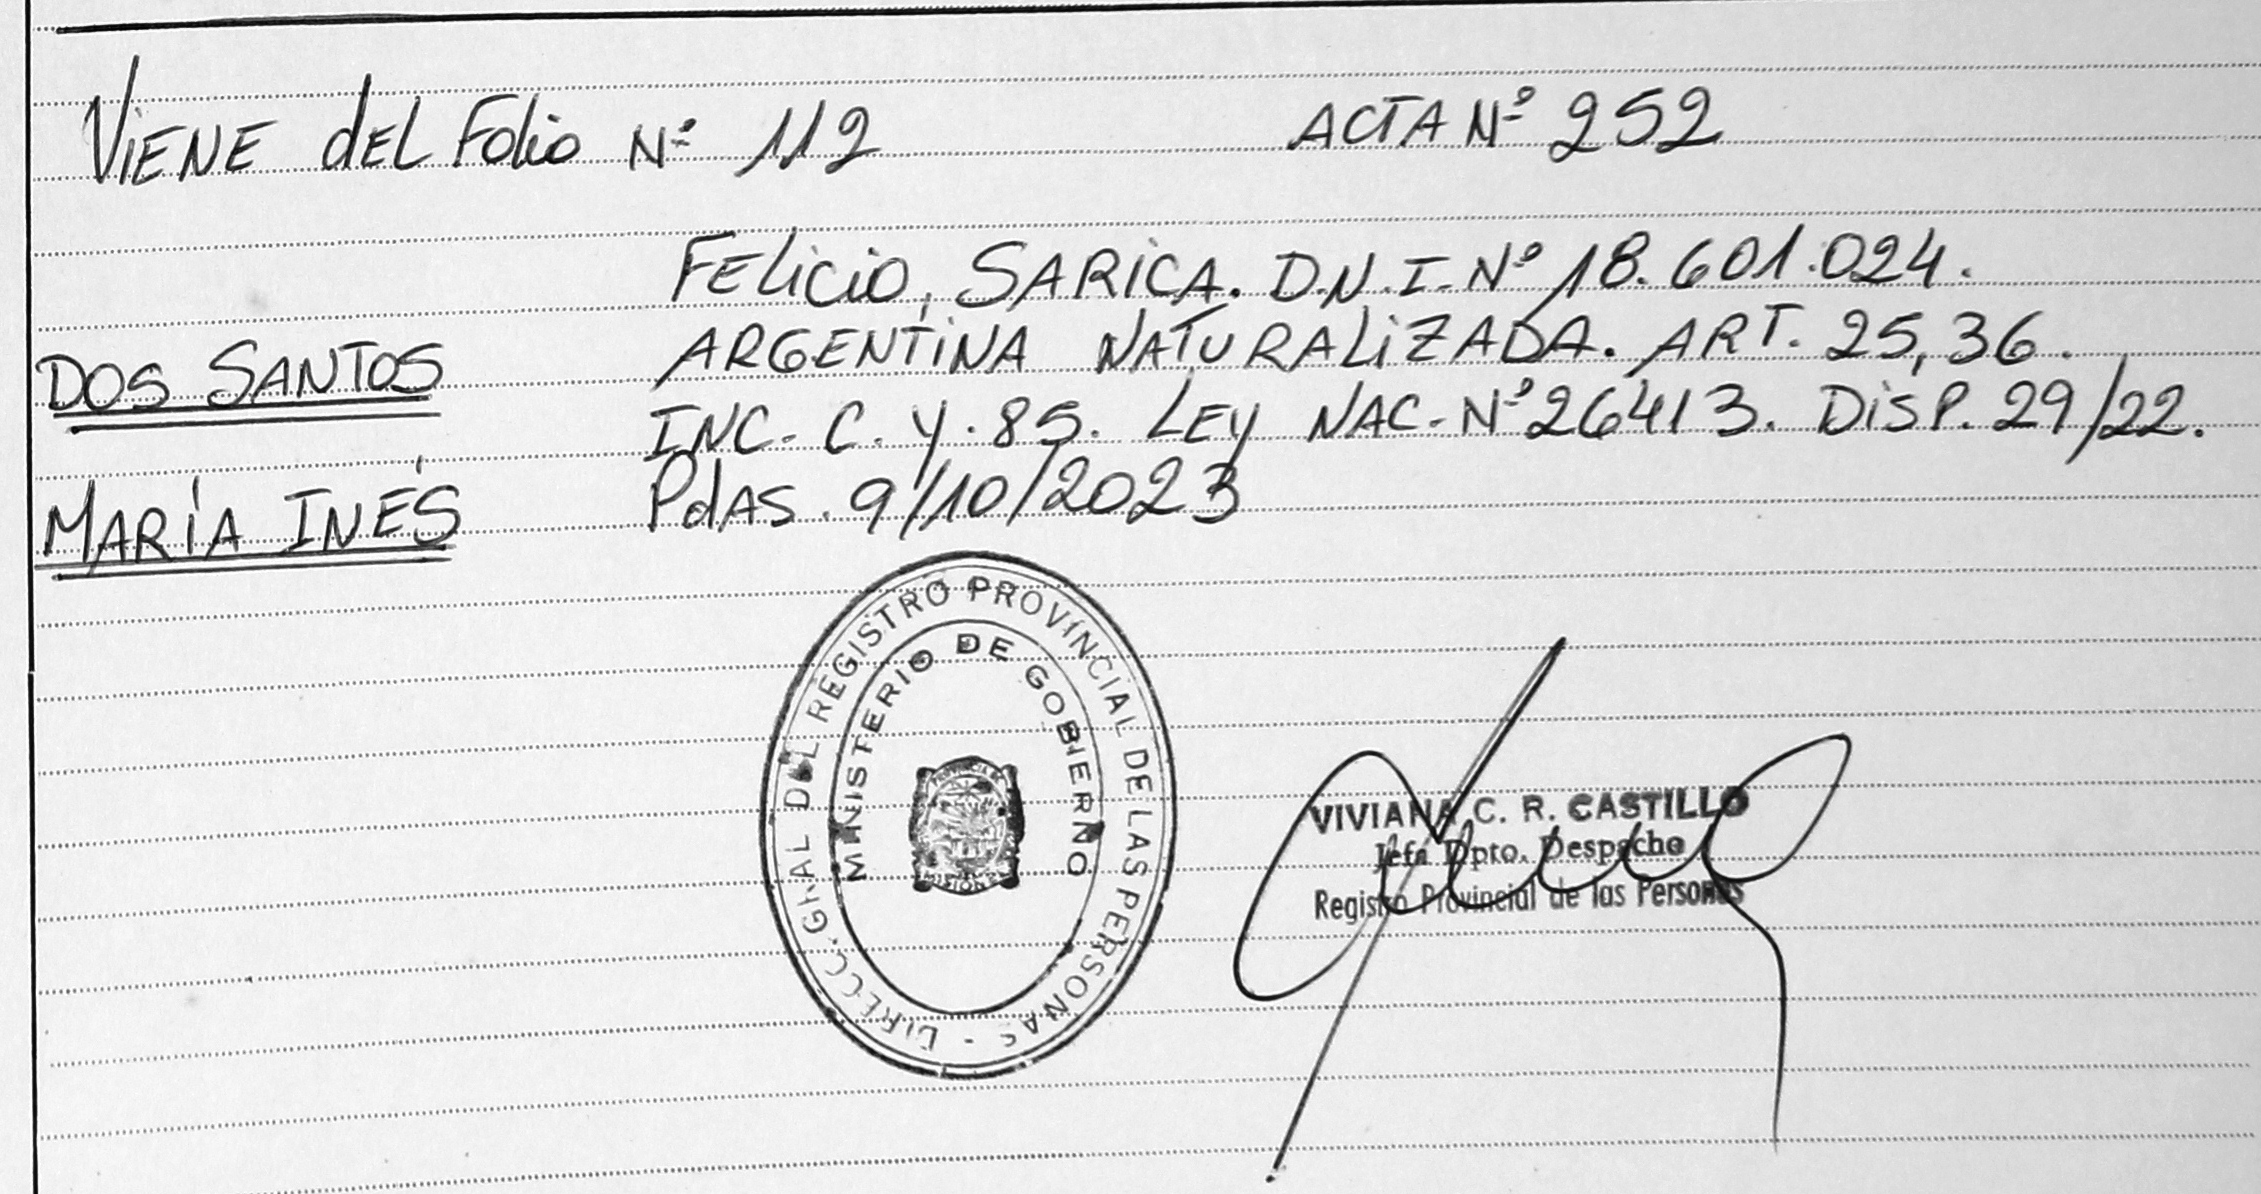 VIENE dEL Folio Nº 112
ACTA Nº 252
FELICIO, SARICA. D.N.I. Nº 18.601.024.
ARGENTINA NATURALIZADA. ART. 25, 36.
INC. C. Y. 85. LEY NAC. Nº 26413. DISP. 29/22.
PdAS. 9/10/2023
DOS SANTOS
MARÍA INÉS
DIRECC. GRAL DEL REGISTRO PROVINCIAL DE LAS PERSONAS -
MINISTERIO DE GOBIERNO
VIVIANA C. R. CASTILLO
Jefa Dpto. Despacho
Registro Provincial de las Personas